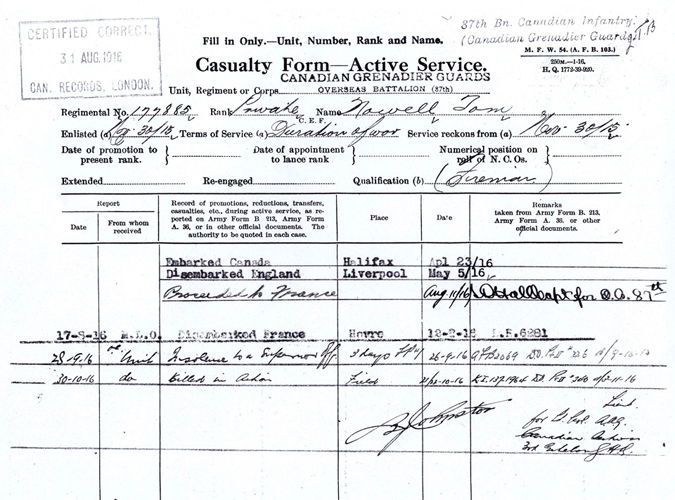 87th Bn. Canadian Infantry.
(Canadian Grenadier Guards)
CERTIFIED CORRECT.
31 AUG. 1916
CAN. RECORDS, LONDON.
Fill in Only.—Unit, Number, Rank and Name.
M. F. W. 54. (A. F. B. 103.)
250M.—1-16.
H. Q. 1772-39-920.
Casualty Form—Active Service.
CANADIAN GRENADIER GUARDS
Unit, Regiment or Corps OVERSEAS BATTALION (87th)
Regimental No. 177885 Rank Private Name Nowell Tom
C.E.F.
Enlisted (a) 30/15 Terms of Service (a) Duration of war Service reckons from (a) Nov 30/15
Date of promotion to present rank. Date of appointment to lance rank Numerical position on roll of N. C. Os.
Extended Re-engaged Qualification (b) (Fireman)
Report
Date From whom received
Record of promotions, reductions, transfers, casualties, etc., during active service, as reported on Army Form B 213, Army Form A. 36, or in other official documents. The authority to be quoted in each case.
Place
Date
Remarks taken from Army Form B. 213, Army Form A. 36. or other official documents.
Embarked Canada Halifax Apl 23/16
Disembarked England Liverpool May 5/16
Proceeded to France Aug 11/16 Capt for O.C. 87th
17-9-16 M.L.O. Disembarked France Havre
28-9-16 Unit Insolence to a Superior Off 3 days 26-9-16
30-10-16 do Killed in Action Field
Johnston
Lieut.
for
Canadian